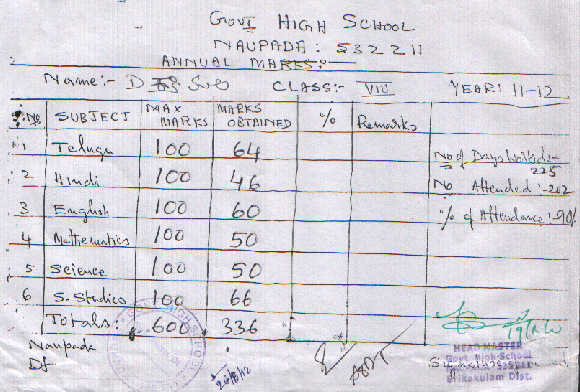 GOVT HIGH SCHOOL
NAUPADA: 532211
ANNUAL MARKS:-
Name:- D CLASS:- VII C YEAR: 11-12
No SUBJECT MAX MARKS MARKS OBTAINED % Remarks
1 Telugu 100 64
2 Hindi 100 46
3 English 100 60
4 Mathematics 100 50
5 Science 100 50
6 S. Studies 100 66
Totals: 600 336
No of Days :- 225
No Attended :- 202
% of Attendance :- 90%
Naupada
Dt
HEAD MASTER
Govt High School
Srikakulam Dist.